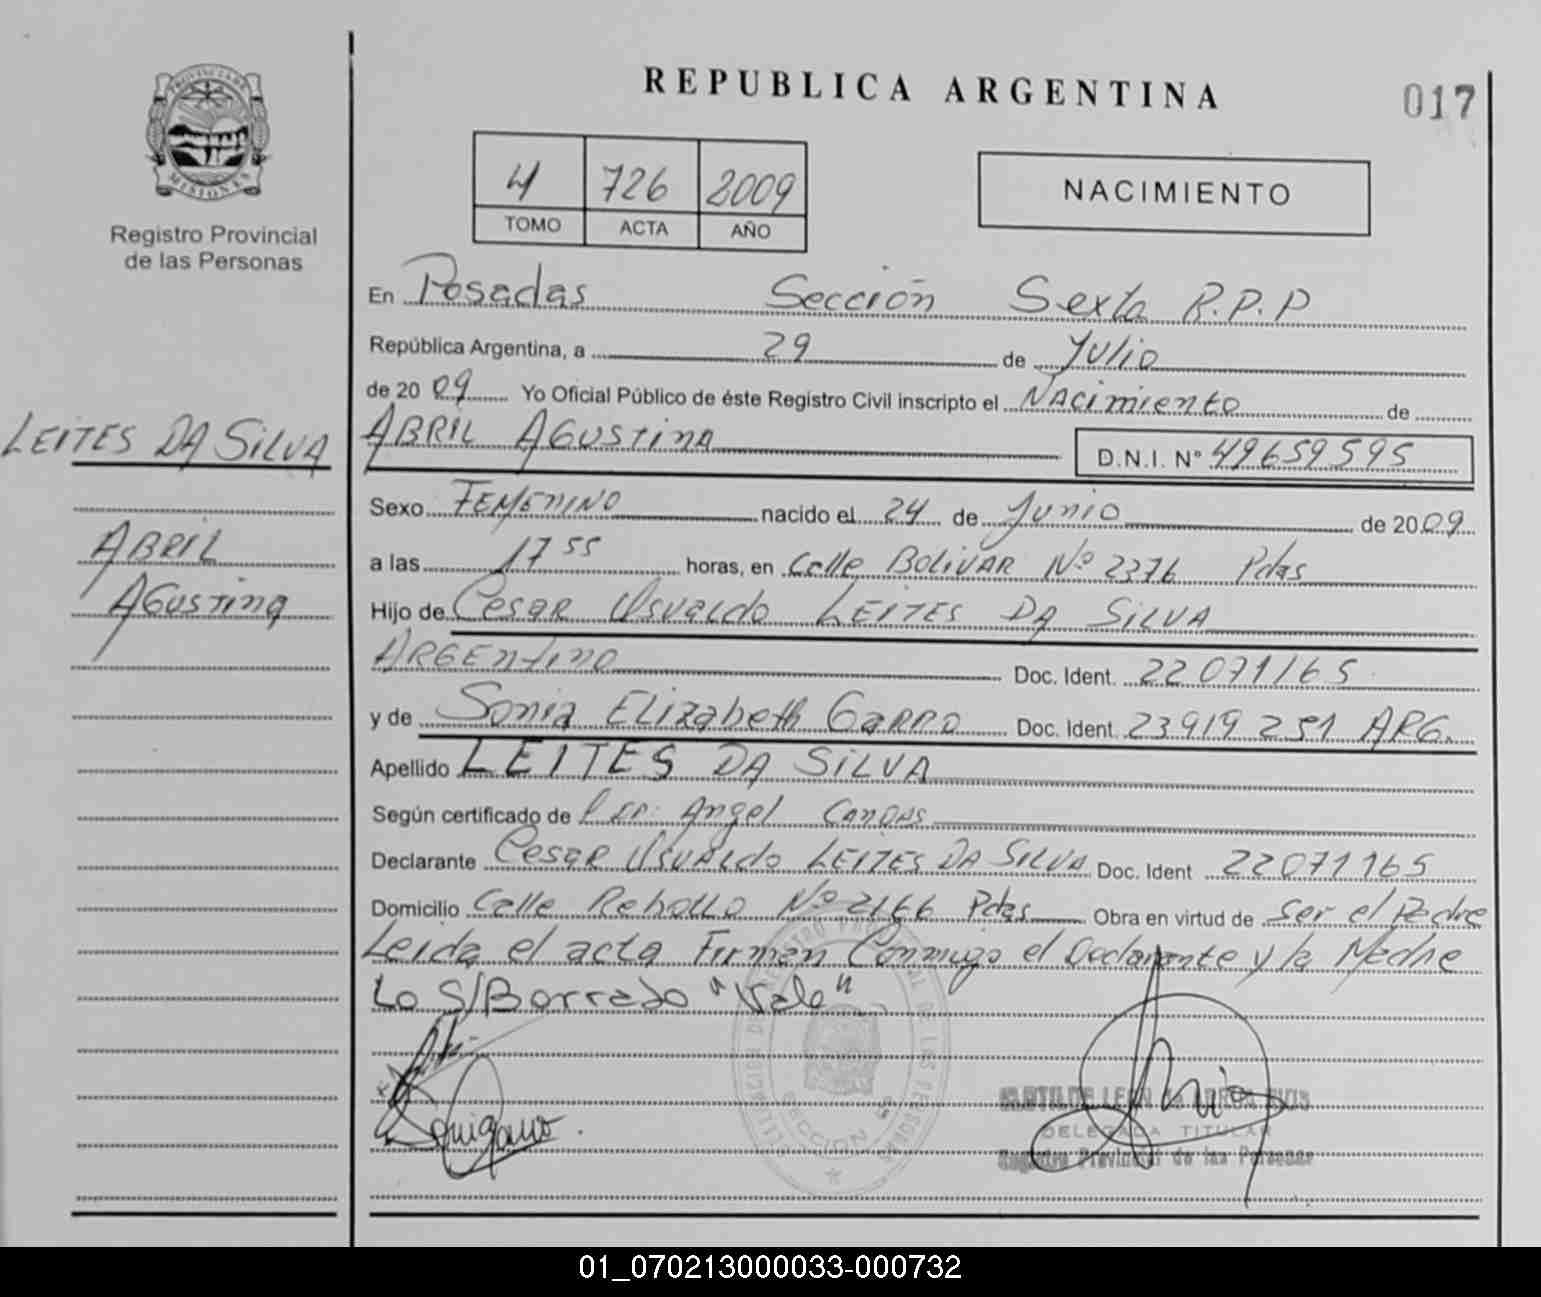 REPUBLICA ARGENTINA
017
PROVINCIA DE
MISIONES
Registro Provincial
de las Personas
4 726 2009
TOMO ACTA AÑO
NACIMIENTO
En Posadas Sección Sexta R.P.P
República Argentina, a 29 de Julio
de 20 09 Yo Oficial Público de éste Registro Civil inscripto el Nacimiento de
LEITES DA SILVA
ABRIL AGUSTINA D.N.I. N° 49659595
Sexo FEMENINO nacido el 24 de Junio de 2009
ABRIL
AGUSTINA
a las 17 55 horas, en Calle BOLIVAR Nº 2376 Pdas
Hijo de Cesar Osvaldo LEITES DA SILVA
ARGENTINO Doc. Ident. 22071165
y de Sonia Elizabeth Garro Doc. Ident. 23919251 ARG.
Apellido LEITES DA SILVA
Según certificado de Angel
Declarante Cesar Osvaldo LEITES DA SILVA Doc. Ident 22071165
Domicilio Calle Nº 2166 Pdas Obra en virtud de Ser el Padre
Leida el acta Firman Conmigo el Declarante y la Madre
Lo S/Borrado "Vale"
SECCION
DELEGADA TITULAR
Registro Provincial de las Personas
01_070213000033-000732